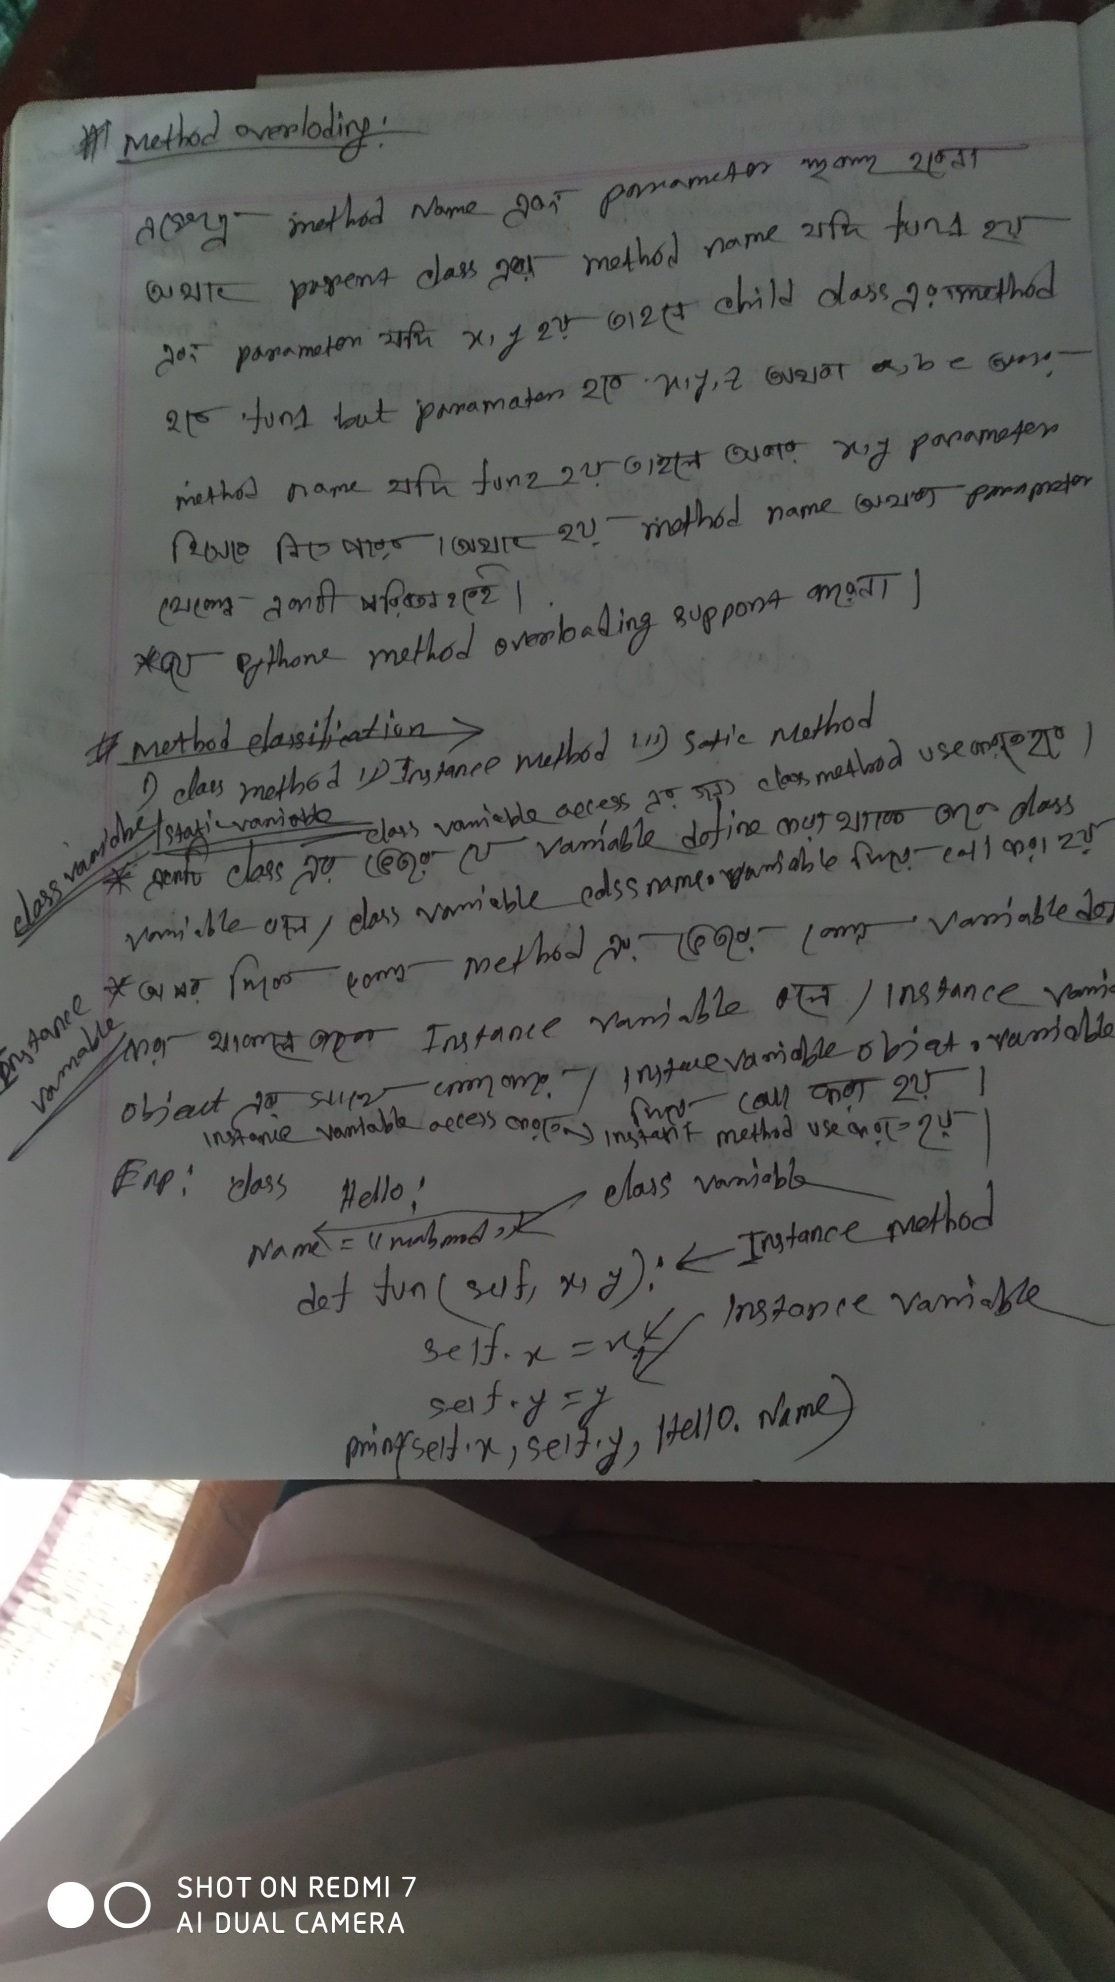 # Method overloding:
method Name এবং parameter same হবেনা
অথাৎ parent class এর method name যদি fun1 হয়
এবং parameter যদি x, y হয় তাহলে child class এর method
হবে fun1 but paramater হবে x, y, z অথবা a, b c আবার
method name যদি fun2 হয় তাহলে আবার x, y parameter
হিসেবে নিতে পারব। অথাৎ হয় method name অথবা parameter
যেকোন একটা পরিবর্তন হবেই।
* pythone method overloading support করেনা।
# method classification →
i) class method ii) Instance method iii) Satic Method
class variable/static variable
class variable access এর জন্য class method use করতে হবে।
* একটি class এর ভেতর যে variable define করা থাকে তাকে class
variable বলে / class variable calss name. variable দিয়ে call করা হয়
Instance variable
* method এর ভেতর কোন variable
করা থাকলে তাকে Instance variable বলে / Instance
object এর সাথে / Instace variable object. variable
দিয়ে call করা হয়।
instance variable access করতে instant method use করতে হয়।
Exp: class Hello:
class variable
Name = "mahmud"
def fun(self, x, y): ← Instance method
self.x = x
Instance variable
self.y = y
print(self.x, self.y, Hello. Name)
SHOT ON REDMI 7
AI DUAL CAMERA